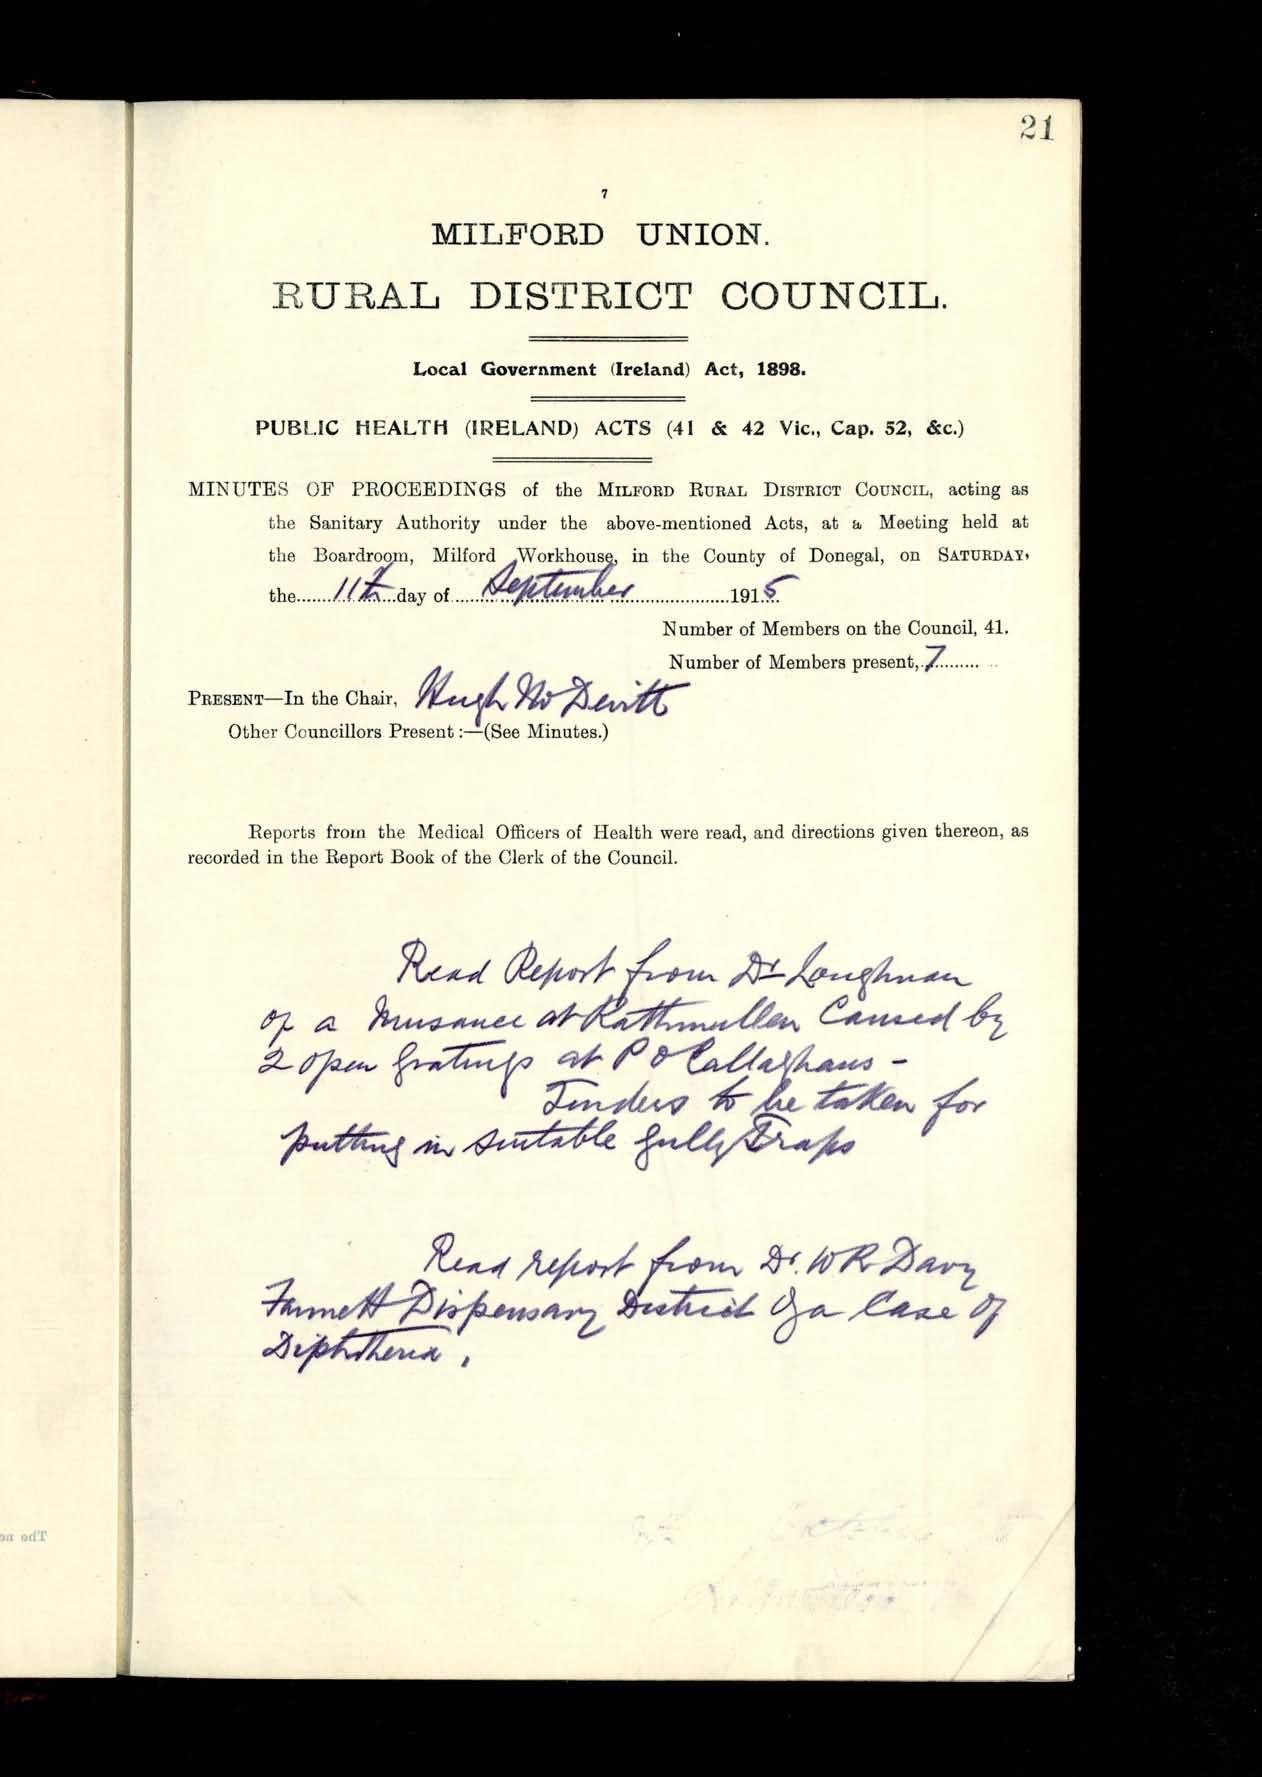 21
7
MILFORD UNION.
RURAL DISTRICT COUNCIL.
Local Government (Ireland) Act, 1898.
PUBLIC HEALTH (IRELAND) ACTS (41 & 42 Vic., Cap. 52, &c.)
MINUTES OF PROCEEDINGS of the MILFORD RURAL DISTRICT COUNCIL, acting as
the Sanitary Authority under the above-mentioned Acts, at a Meeting held at
the Boardroom, Milford Workhouse, in the County of Donegal, on SATURDAY,
the.......11th...day of.....September.....................1915
Number of Members on the Council, 41.
Number of Members present, 7
PRESENT—In the Chair, Hugh McDevitt
Other Councillors Present :—(See Minutes.)
Reports from the Medical Officers of Health were read, and directions given thereon, as
recorded in the Report Book of the Clerk of the Council.
Read Report from Dr Loughnan
of a Nuisance at Rathmullen Caused by
2 open gratings at P O'Callaghans -
Tenders to be taken for
putting in suitable gully Traps
Read report from Dr. W R Davy
Fannett Dispensary District of a Case of
Diphtheria.
The ne